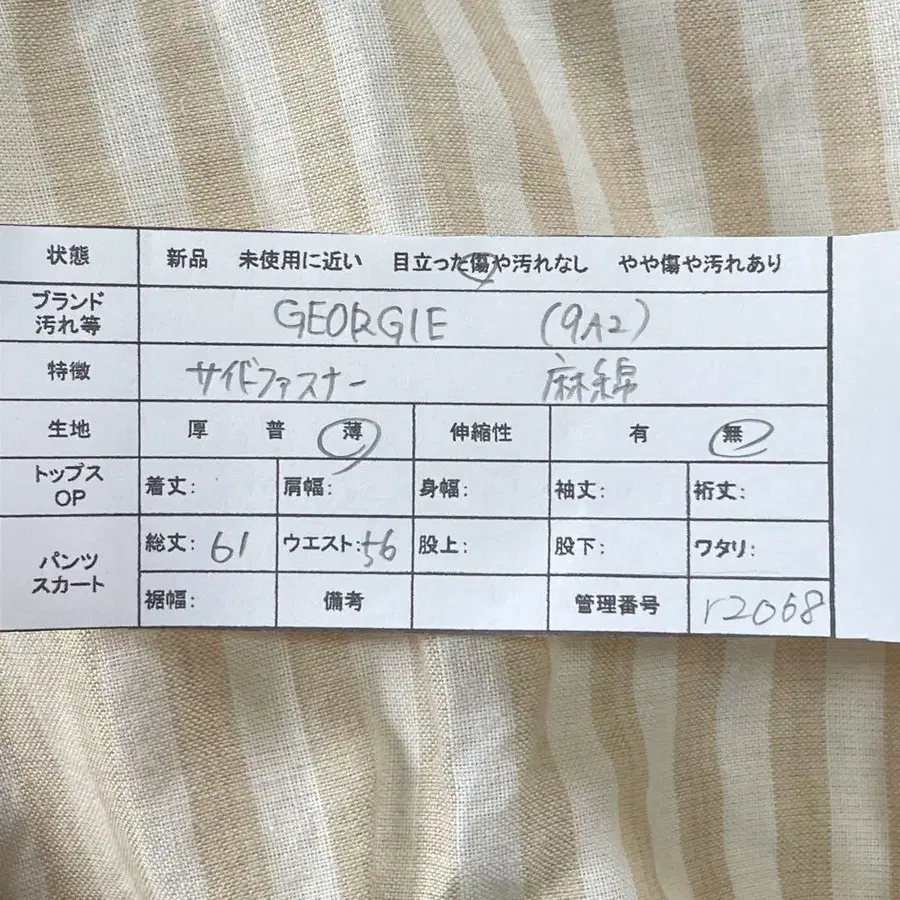 状態 新品 未使用に近い 目立った傷や汚れなし やや傷や汚れあり
ブランド
汚れ等 GEORGIE (9A2)
特徴 サイドファスナー 麻綿
生地 厚 普 薄 伸縮性 有 無
トップス
OP 着丈: 肩幅: 身幅: 袖丈: 裄丈:
パンツ
スカート 総丈: 61 ウエスト: 56 股上: 股下: ワタリ:
裾幅: 備考 管理番号 r2068